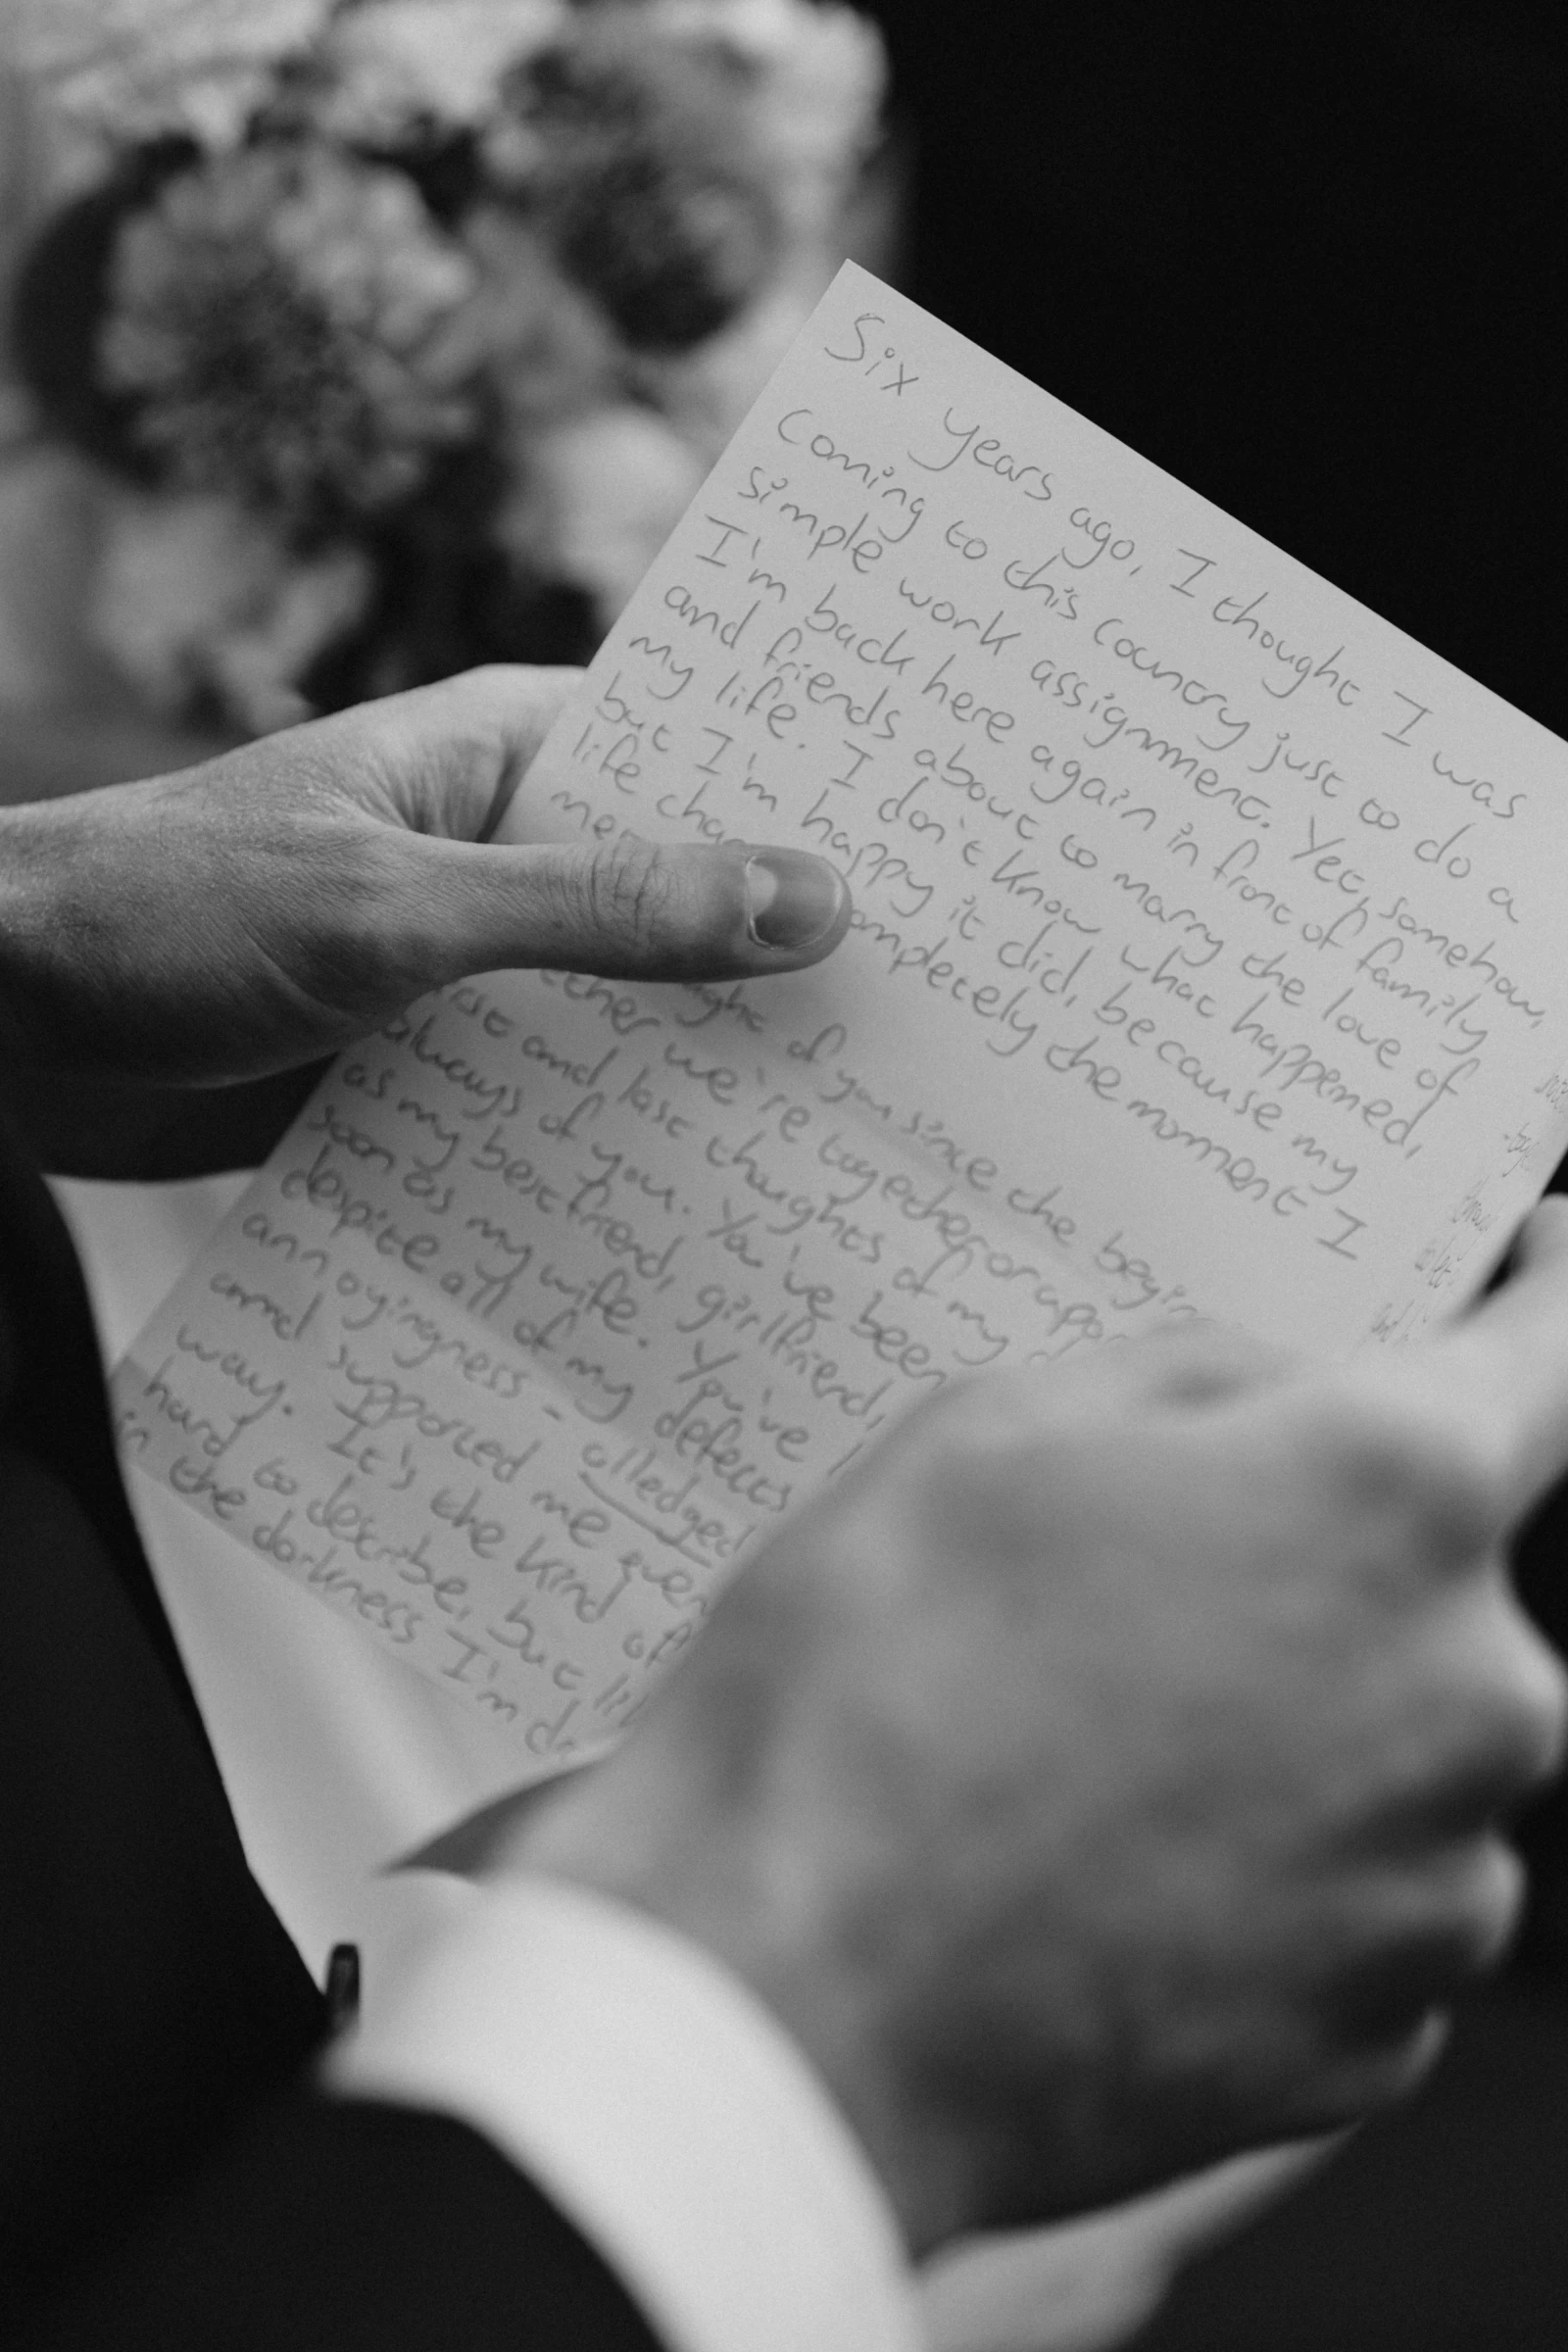 Six years ago, I thought I was
Coming to this country just to do a
simple work assignment. Yet, somehow,
I'm back here again in front of family
and friends about to marry the love of
my life. I don't know what happened,
but I'm happy it did, because my
life
the moment I
of you since the
we're together or
and last thoughts of my
always of you. You've been
as my best friend, girlfriend,
soon as my wife. You've
despite all of my defects
annoyingness - alledged
and supported me
way. It's the kind of
hard to describe, but
in the darkness I'm